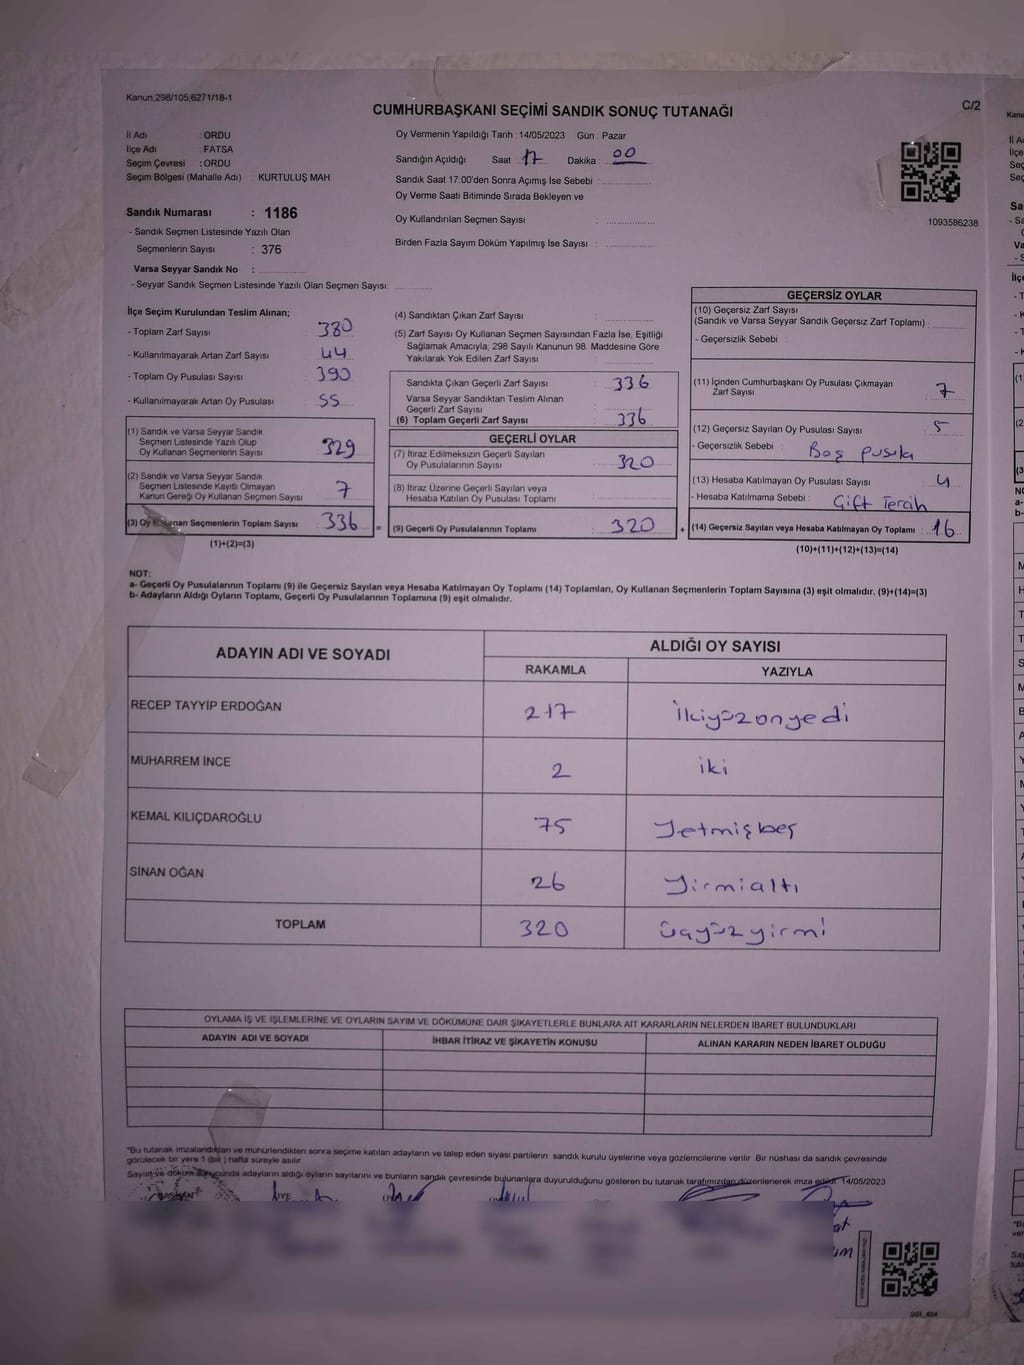 Kanun;298/105;6271/18-1
C/2
CUMHURBAŞKANI SEÇİMİ SANDIK SONUÇ TUTANAĞI
İl Adı : ORDU
İlçe Adı : FATSA
Seçim Çevresi : ORDU
Seçim Bölgesi (Mahalle Adı) : KURTULUŞ MAH.
Sandık Numarası : 1186
- Sandık Seçmen Listesinde Yazılı Olan
Seçmenlerin Sayısı : 376
Varsa Seyyar Sandık No :
- Seyyar Sandık Seçmen Listesinde Yazılı Olan Seçmen Sayısı:
Oy Vermenin Yapıldığı Tarih : 14/05/2023 Gün : Pazar
Sandığın Açıldığı Saat : 17 Dakika : 00
Sandık Saat 17:00'den Sonra Açımış İse Sebebi :
Oy Verme Saati Bitiminde Sırada Bekleyen ve
Oy Kullandırılan Seçmen Sayısı :
Birden Fazla Sayım Döküm Yapılmış İse Sayısı :
1093586238
İlçe Seçim Kurulundan Teslim Alınan;
- Toplam Zarf Sayısı : 380
- Kullanılmayarak Artan Zarf Sayısı : 44
- Toplam Oy Pusulası Sayısı : 390
- Kullanılmayarak Artan Oy Pusulası : 55
(1) Sandık ve Varsa Seyyar Sandık
Seçmen Listesinde Yazılı Olup
Oy Kullanan Seçmenlerin Sayısı : 329
(2) Sandık ve Varsa Seyyar Sandık
Seçmen Listesinde Kayıtlı Olmayan
Kanun Gereği Oy Kullanan Seçmen Sayısı : 7
(3) Oy Kullanan Seçmenlerin Toplam Sayısı : 336 =
(1)+(2)=(3)
(4) Sandıktan Çıkan Zarf Sayısı :
(5) Zarf Sayısı Oy Kullanan Seçmen Sayısından Fazla İse, Eşitliği
Sağlamak Amacıyla; 298 Sayılı Kanunun 98. Maddesine Göre
Yakılarak Yok Edilen Zarf Sayısı :
Sandıkta Çıkan Geçerli Zarf Sayısı : 336
Varsa Seyyar Sandıktan Teslim Alınan
Geçerli Zarf Sayısı :
(6) Toplam Geçerli Zarf Sayısı : 336
GEÇERLİ OYLAR
(7) İtiraz Edilmeksizin Geçerli Sayılan
Oy Pusulalarının Sayısı : 320
(8) İtiraz Üzerine Geçerli Sayılan veya
Hesaba Katılan Oy Pusulası Toplamı :
(9) Geçerli Oy Pusulalarının Toplamı : 320 +
GEÇERSİZ OYLAR
(10) Geçersiz Zarf Sayısı
(Sandık ve Varsa Seyyar Sandık Geçersiz Zarf Toplamı) :
- Geçersizlik Sebebi :
(11) İçinden Cumhurbaşkanı Oy Pusulası Çıkmayan
Zarf Sayısı : 7
(12) Geçersiz Sayılan Oy Pusulası Sayısı : 5
- Geçersizlik Sebebi : Boş pusula
(13) Hesaba Katılmayan Oy Pusulası Sayısı : 4
- Hesaba Katılmama Sebebi : Çift Tercih
(14) Geçersiz Sayılan veya Hesaba Katılmayan Oy Toplamı : 16
(10)+(11)+(12)+(13)=(14)
NOT:
a- Geçerli Oy Pusulalarının Toplamı (9) ile Geçersiz Sayılan veya Hesaba Katılmayan Oy Toplamı (14) Toplamları, Oy Kullanan Seçmenlerin Toplam Sayısına (3) eşit olmalıdır. (9)+(14)=(3)
b- Adayların Aldığı Oyların Toplamı, Geçerli Oy Pusulalarının Toplamına (9) eşit olmalıdır.
ADAYIN ADI VE SOYADI ALDIĞI OY SAYISI
RAKAMLA YAZIYLA
RECEP TAYYİP ERDOĞAN 217 ikiyüzonyedi
MUHARREM İNCE 2 iki
KEMAL KILIÇDAROĞLU 75 Yetmişbeş
SİNAN OĞAN 26 Yirmialtı
TOPLAM 320 üçyüzyirmi
OYLAMA İŞ VE İŞLEMLERİNE VE OYLARIN SAYIM VE DÖKÜMÜNE DAİR ŞİKAYETLERLE BUNLARA AİT KARARLARIN NELERDEN İBARET BULUNDUKLARI
ADAYIN ADI VE SOYADI İHBAR İTİRAZ VE ŞİKAYETİN KONUSU ALINAN KARARIN NEDEN İBARET OLDUĞU
*Bu tutanak imzalandıktan ve mühürlendikten sonra seçime katılan adayların ve talep eden siyasi partilerin sandık kurulu üyelerine veya gözlemcilerine verilir. Bir nüshası da sandık çevresinde
görülecek bir yere 1 (bir ) hafta süreyle asılır.
Sayım ve döküm sonucunda adayların aldığı oyların sayılarını ve bunların sandık çevresinde bulunanlara duyurulduğunu gösteren bu tutanak tarafımızdan düzenlenerek imza edildi. 14/05/2023
BAŞKAN ÜYE